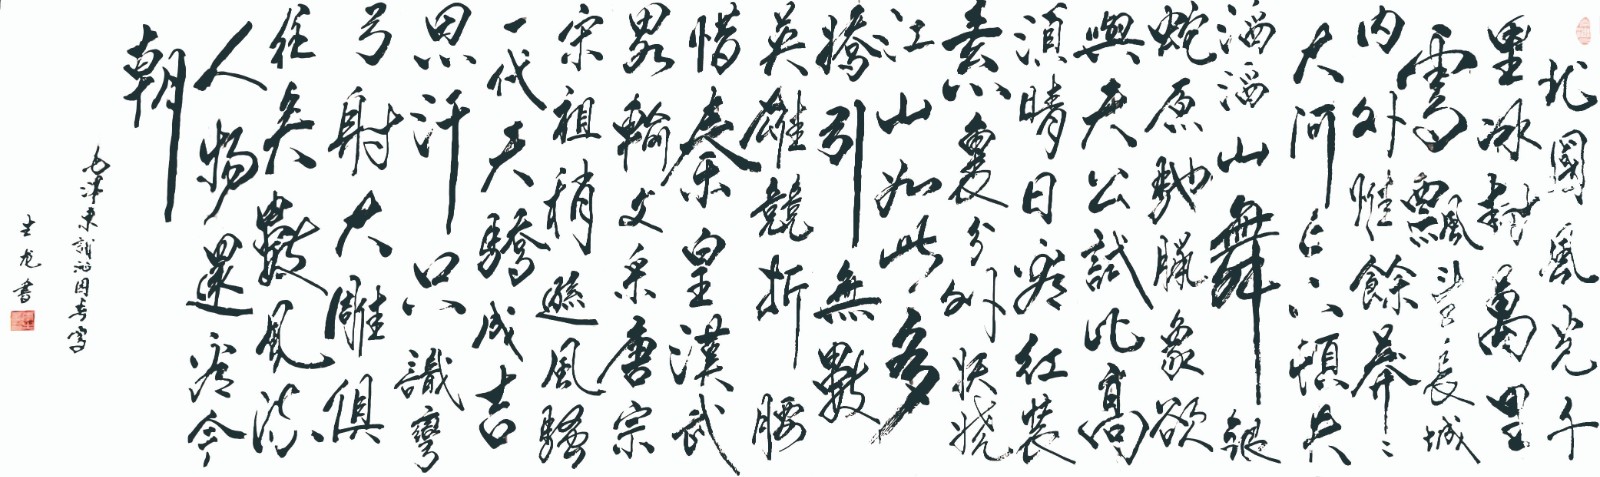 北國風光千
里冰封萬里
雪飄望長城
内外惟餘莽〻
大河上下頓失
滔滔山舞銀
蛇原馳臘象欲
與天公試比高
須晴日看紅裝
素裹分外妖嬈
江山如此多
嬌引無數
英雄競折腰
惜秦皇漢武
略輸文采唐宗
宋祖稍遜風騷
一代天驕成吉
思汗只識彎
弓射大雕俱
往矣數風流
人物還看今
朝
毛澤東詞沁園春雪
書